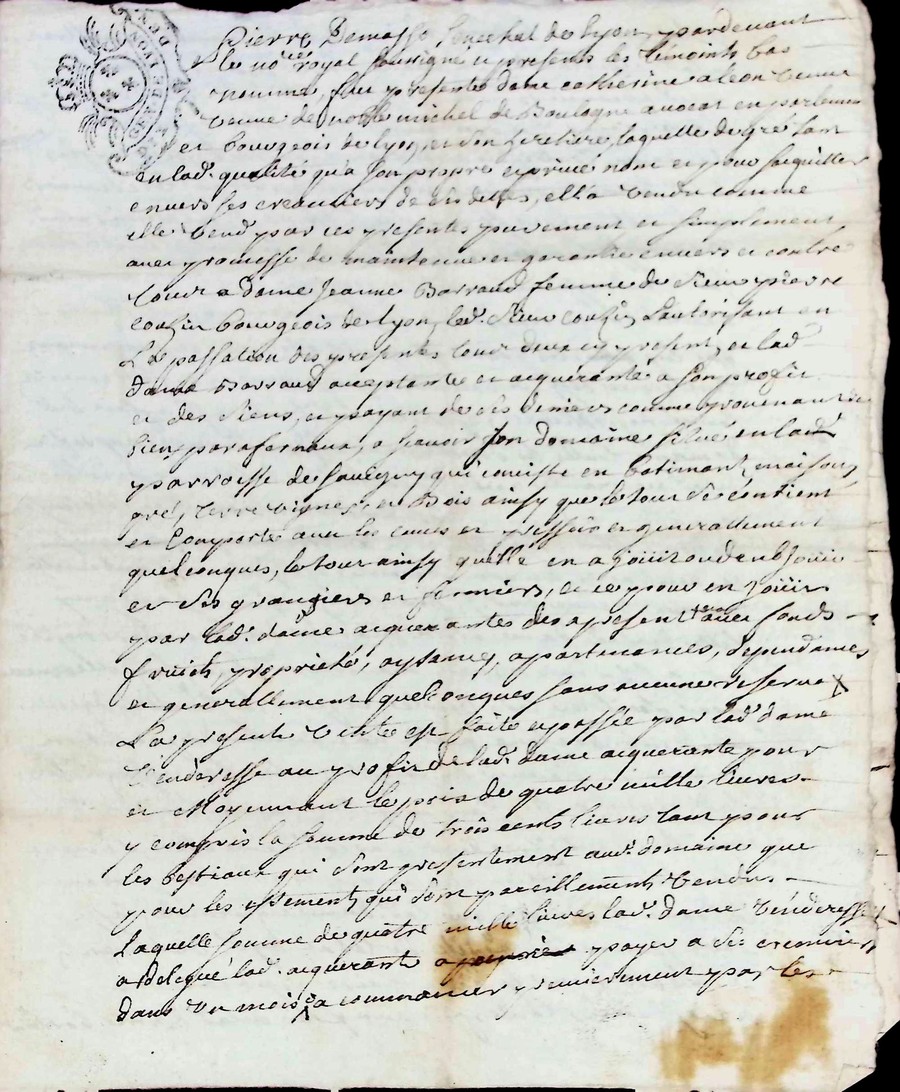 Pierre Demasso Senechal de Lyon, pardevant
le no.re royal soussigné et presents les temoints bas
nommé, fut presente dame catherine aleon
veuve de noble michel de Boulogne avocat en parlement
et bourgeois de lyon, et son heretiere, laquelle de gré tant
en lad. qualité qu'a son propre et privé nom et pour s'acquiller
envers ses creanciers de ses dettes, ella vendu comme
elle vend par ces presentes purement et simplement
avec promesse de maintenue et garantie envers et contre
tous a dame Jeanne Barraud femme de Sieur pierre
couzin bourgeois de Lyon, led. Sieur couzin L'autorisant en
La passation des presentes tous deux icy present, et lad.
dame Barraud acceptante et acquérante a son profit
et des Siens, et payant de ses deniers comme provenant de
bien parafernaux, a scavoir son domaine situé en lad.
parroisse de Savigny qui consiste en batimant, maison,
pré, terre vignes, et Bois ainsy que le tout se contient
et Comporte avec les cuves et pressoir et generallement
quelconques, le tout ainsy quelle en a jouit ou deub jouir
et ses grangiers et fermiers, et ce pour en joüir
par lad. dame acquerantes des apresent avec fonds
fruicts, proprieté, aysances, apartenances, dependances
et generallement quelconques sans aucune reserve X
La presente vente est faite et passée par lad. dame
Venderesse au profit de lad. dame acquerante pour
et Moyennant le prix de quatre mille livres
y compris la somme de trois cents livres tant pour
les bestiaux qui sont presentement aud. domaine que
pour les essements qui sont pareillements vendus
Laquelle somme de quatre mille livres lad. dame venderesse
a delegué lad. acquerante a payer a ses creanciers
dans un mois a commancer premierement par les